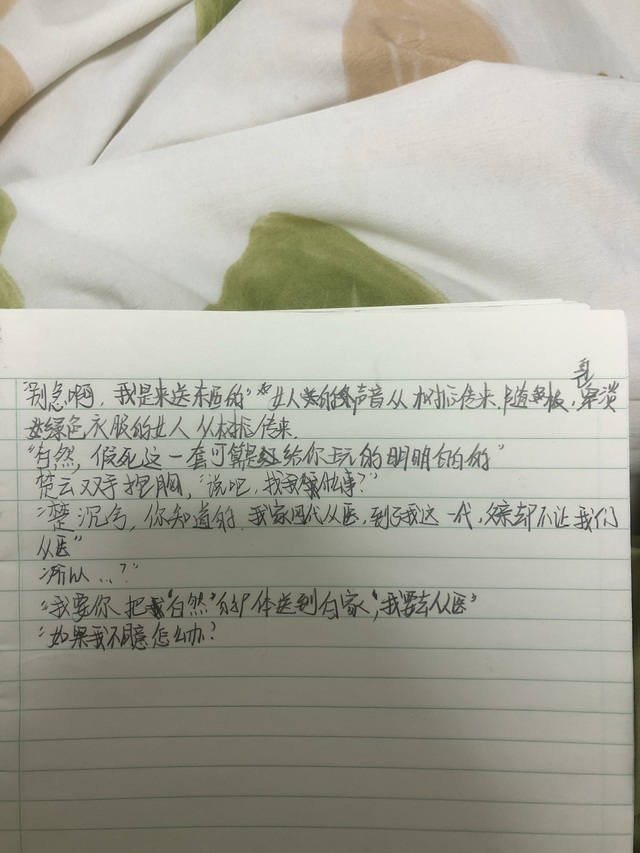 "别急啊，我是来送东西的"女人的声音从树后传来.一道身板，穿淡
绿色衣服的女人从树后传来.
"白然，假死这一套可算是给你玩的明明白白的"
楚云双手抱胸，"说吧，找我做何事?"
"楚沉兮，你知道的.我家四代从医，到了我这一代，父亲却不让我们
从医"
"所以...?"
"我要你把"白然"的尸体送到白家"，"我要去从医"
"如果我不同意怎么办?